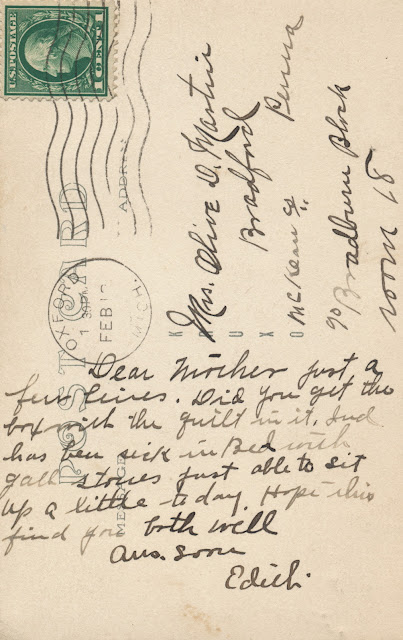 U.S. POSTAGE
1 CENT 1
OXFORD
1 30PM
FEB 12
MICH.
POST CARD
ADDRESS
MESSAGE
K R U X O
Mrs. Olive D. Martin
Bradford
McKean Penna
℅ Bradburn Block
room 18
Dear Mother just a
few lines. Did you get the
box with the quilt in it. Jud
has been sick in Bed with
gall stones just able to sit
up a little to day. Hope this
find you both well
Ans. soon
Edith.